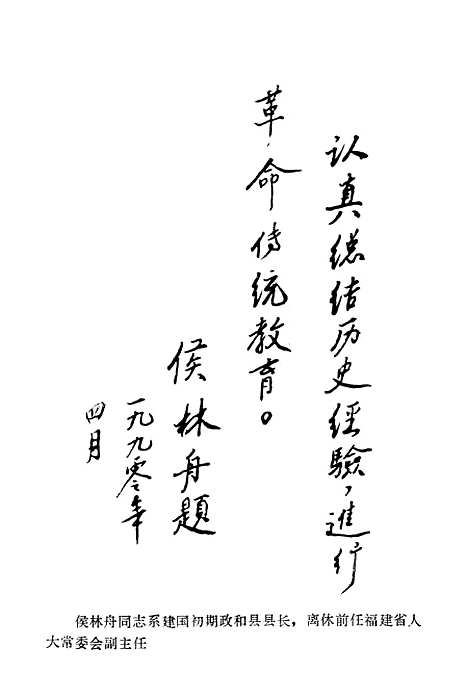 认真總结历史經驗，進行
革命传统教育。
侯林舟題
一九九零年
四月
侯林舟同志系建国初期政和县县长，离休前任福建省人
大常委会副主任